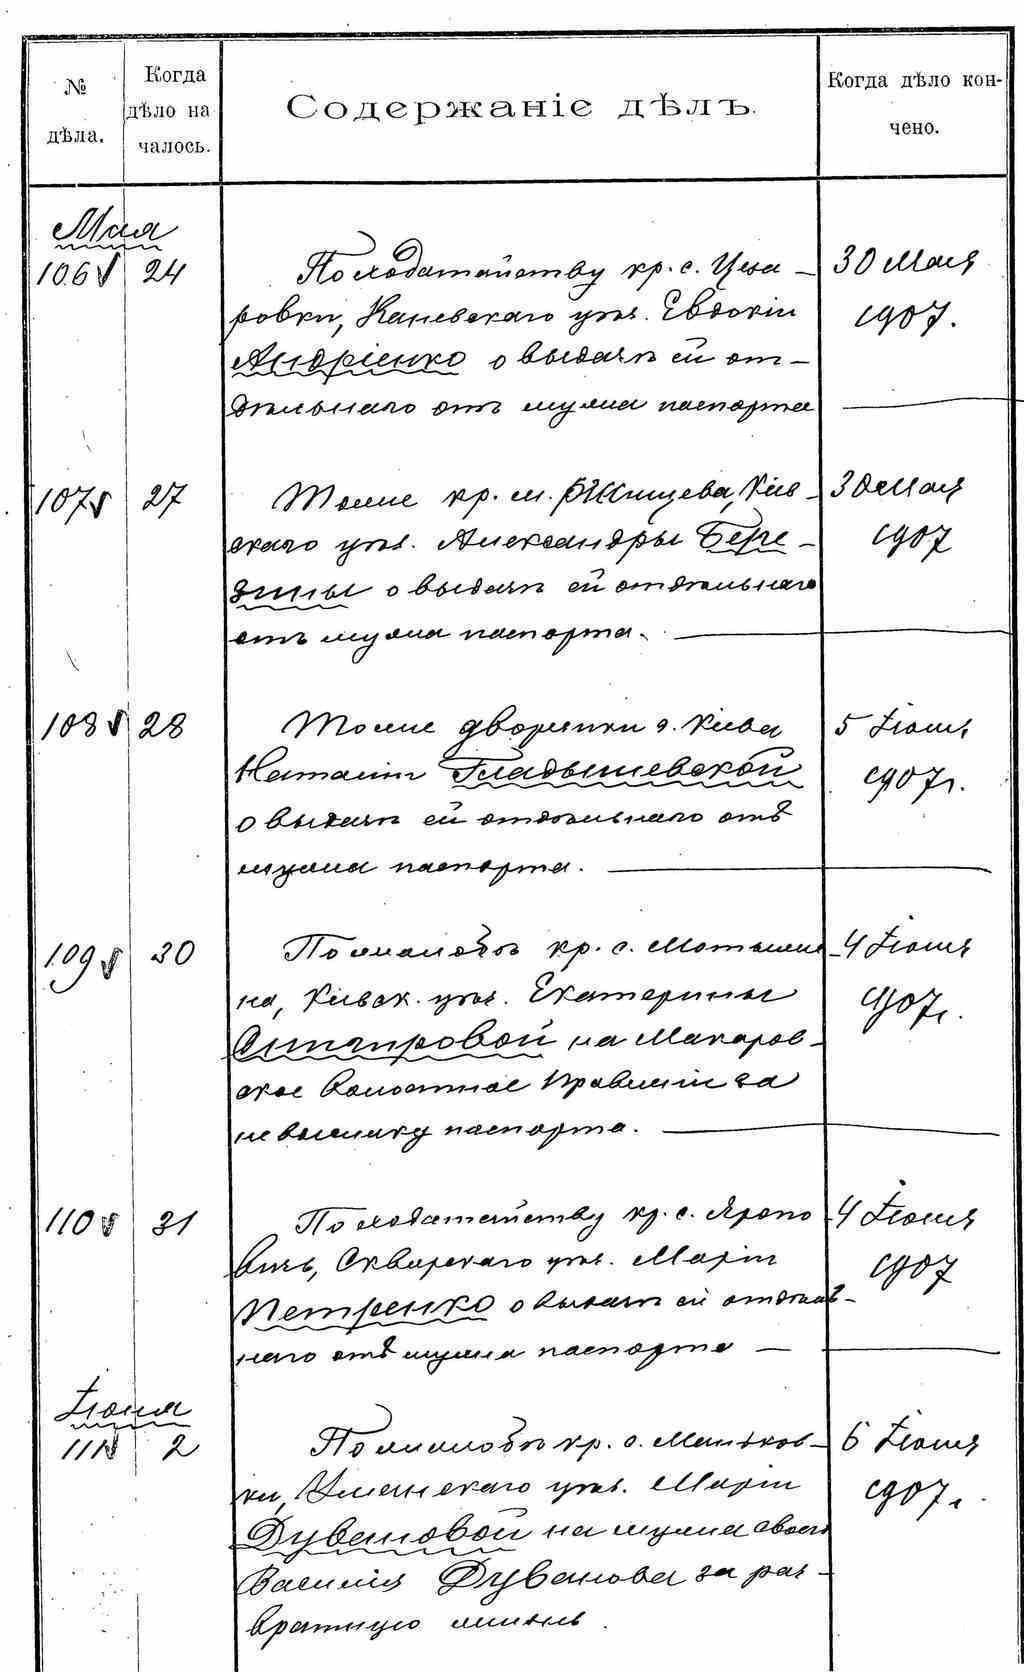 № дѣла.
Когда дѣло на чалось.
Содержаніе дѣлъ.
Когда дѣло кон-
чено.
Мая
106 24 По ходатайству кр. с. 30 Мая
ровки, Каневскаго уѣз. Евдокіи 1907.
Андріенко о выдачѣ ей от-
дѣльнаго отъ мужа паспорта
107 27 Тоже кр. м. Ржищева, Кіев- 30 Мая
скаго уѣз. Александры Бере- 1907
зины о выдачѣ ей отдѣльнаго
отъ мужа паспорта.
108 28 Тоже дворянки г. Кіева 5 Іюня
Наталіи Гладышевской 1907 г.
о выдачѣ ей отдѣльнаго отъ
мужа паспорта.
109 30 По жалобѣ кр. с. Мотыжи- 4 Іюня
на, Кіевск. уѣз. Екатерины 1907 г.
на Макаров-
ское Волостное Правленіе за
невысылку паспорта.
110 31 По ходатайству кр. с. Яропо- 4 Іюня
вичъ, Сквирскаго уѣз. Маріи 1907
Петренко о выдачѣ ей отдѣль-
наго отъ мужа паспорта
Іюня
111 2 По жалобѣ кр. с. Маньков- 6 Іюня
ки, Уманскаго уѣз. Маріи 1907 г.
Дувановой на мужа своего
Василія Дуванова за раз-
вратную жизнь.